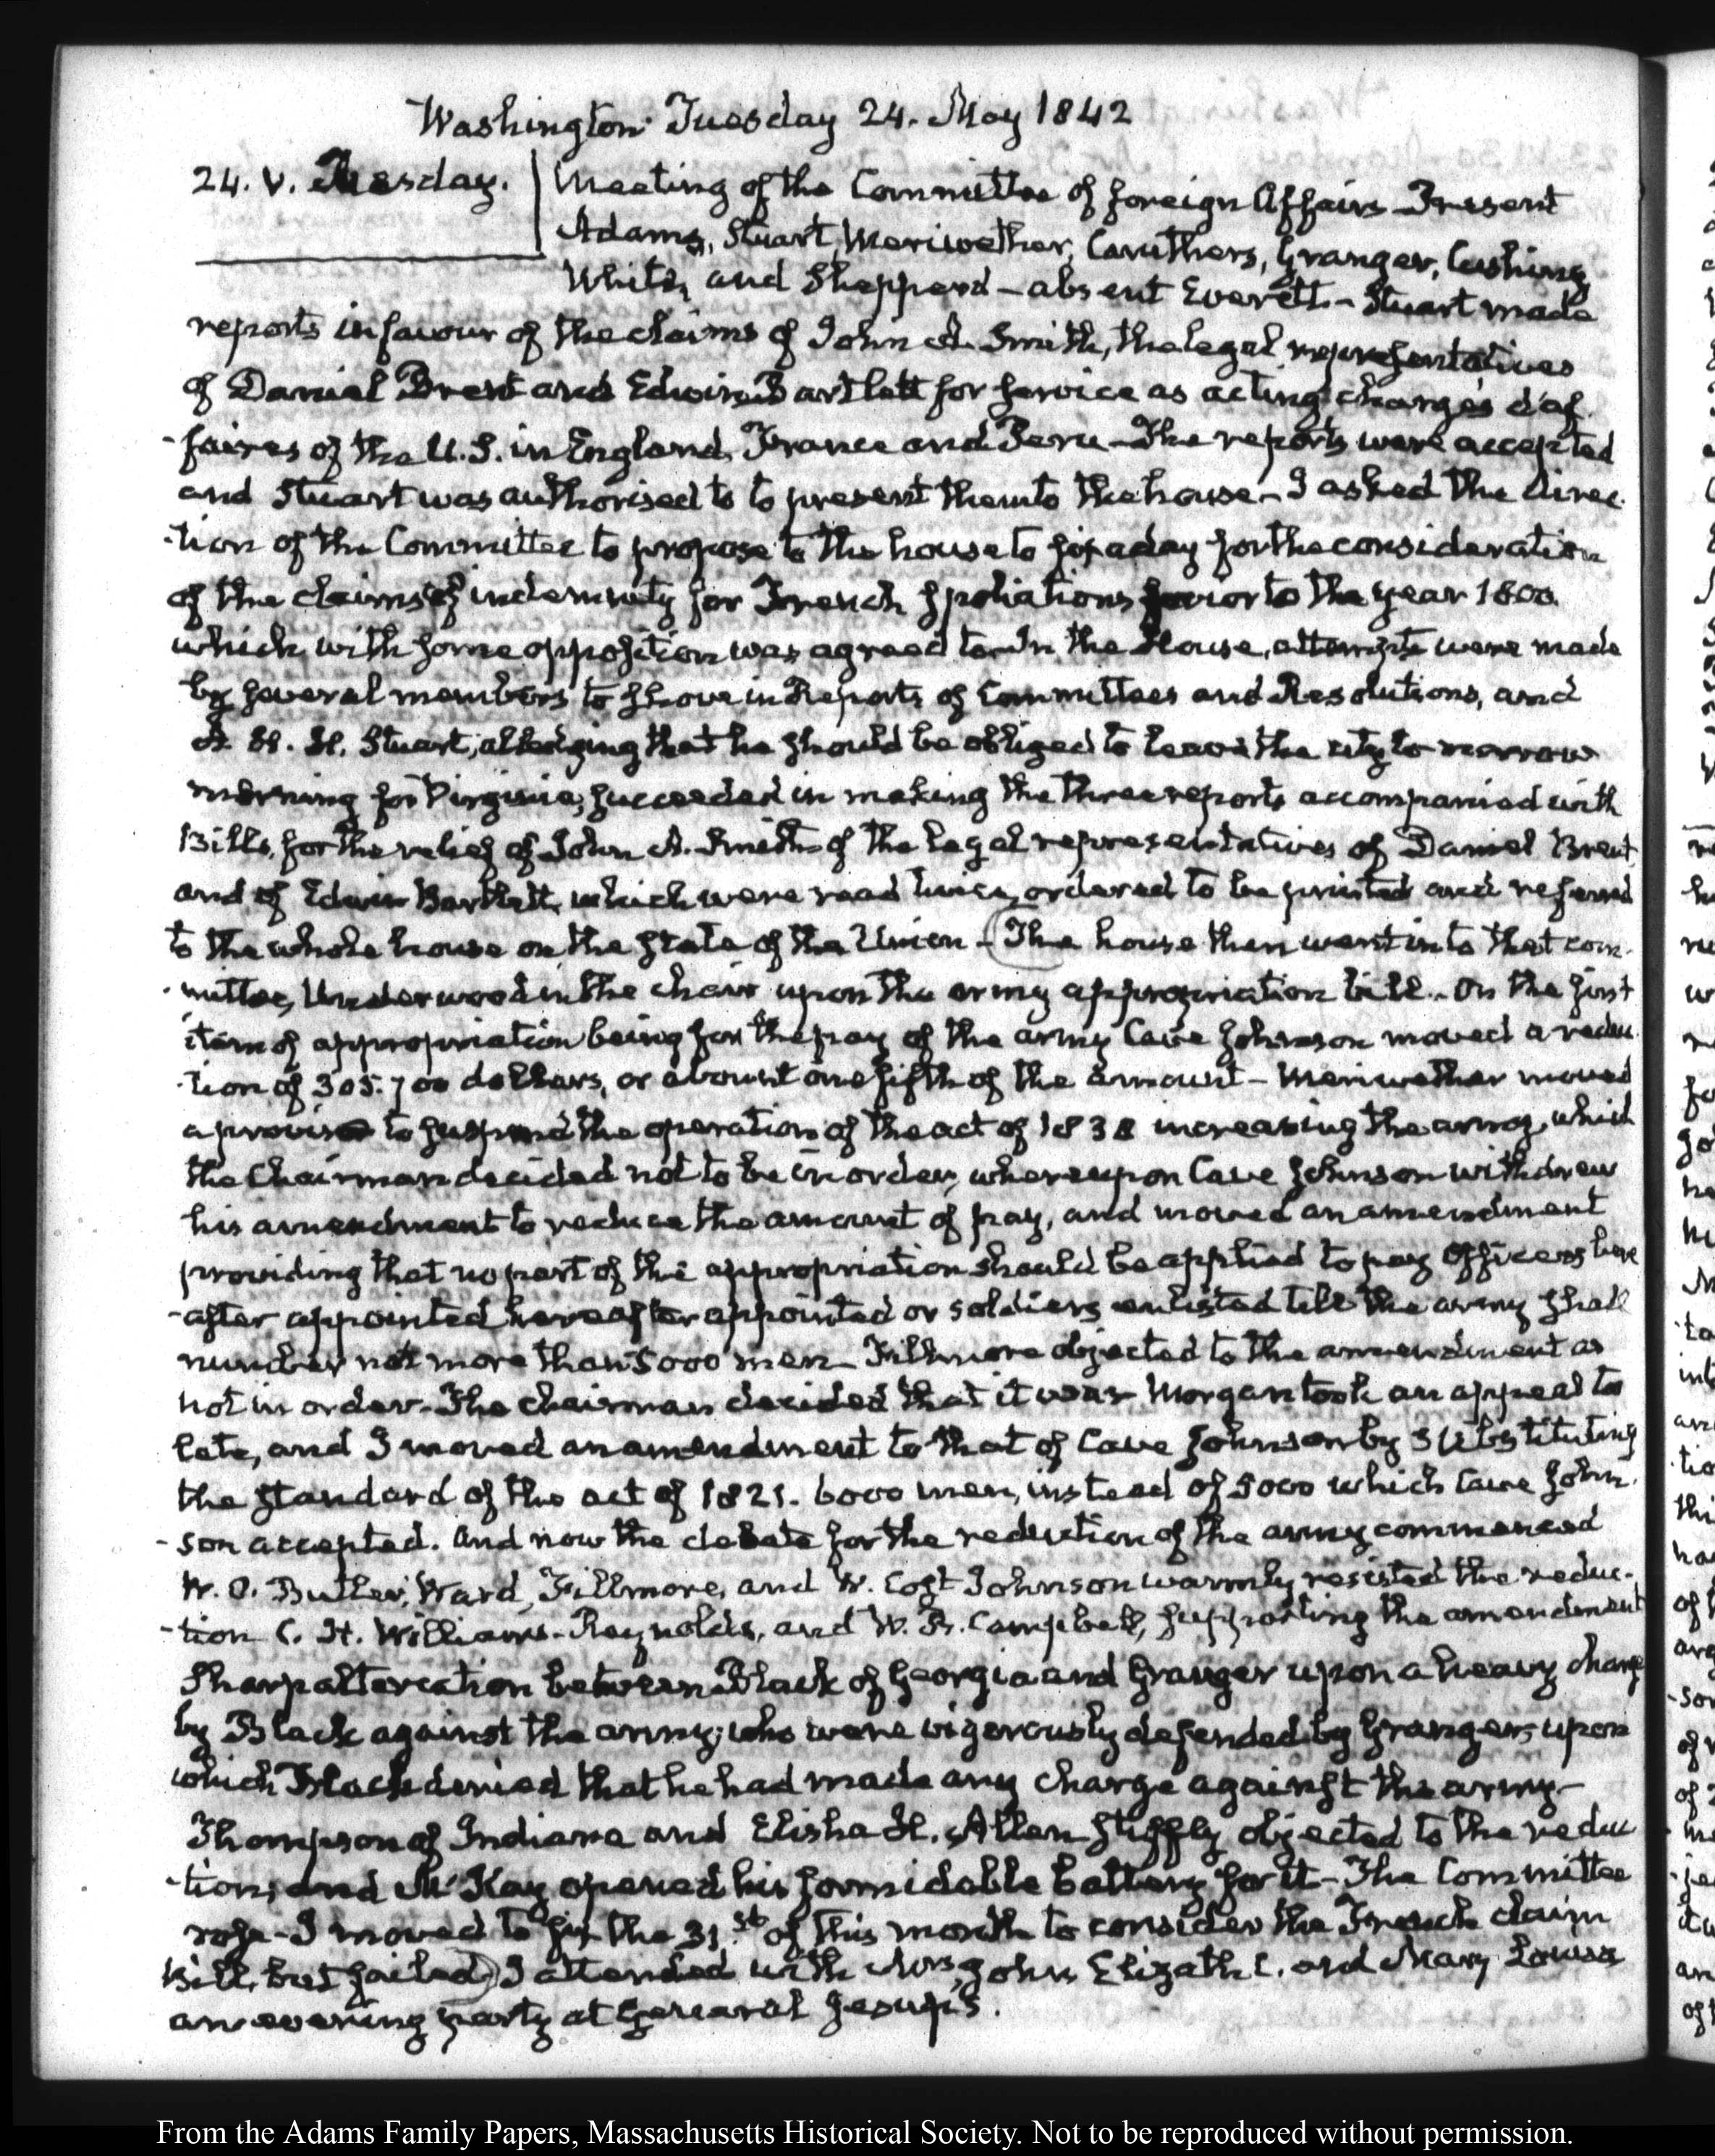 Washington Tuesday 24. May 1842
24. V. Tuesday.
Meeting of the Committee of foreign Affairs Present
Adams, Stuart, Meriwether, Caruthers, Granger, Cushing
White, and Shepperd - absent Everett - Stuart made
reports in favour of the claims of John A. Smith, the legal representatives
of Daniel Brent and Edwin Bartlett for service as acting chargés d'af
-faires of the U.S. in England, France and Peru - The reports were accepted
and Stuart was authorised to to present them to the house - I asked the direc
-tion of the Committee to propose to the house to fix a day for the consideration
of the claims of indemnity for French spoliations prior to the year 1800
which with some opposition was agreed to - In the House, attempts were made
by several members to shove in Reports of Committees and Resolutions, and
A. H. H. Stuart, alledging that he should be obliged to leave the city to morrow
morning for Virginia, succeeded in making the three reports accompanied with
Bills, for the relief of John A. Smith - of the legal representatives of Daniel Brent
and of Edwin Bartlett, which were read twice, ordered to be printed and referred
to the whole house on the state of the Union - (The house then went into that com
-mittee, Underwood in the chair upon the army appropriation bill - On the first
item of appropriation being for the pay of the army Cave Johnson moved a reduc
-tion of 305.700 dollars, or about one fifth of the amount - Meriwether moved
a proviso to suspend the operation of the act of 1838 increasing the army, which
the Chairman decided not to be in order, whereupon Cave Johnson withdrew
his amendment to reduce the amount of pay, and moved an amendment
providing that no part of the appropriation should be applied to pay Officers here
-after appointed hereafter appointed or soldiers enlisted till the army shall
number not more than 5000 men - Fillmore objected to the amendment as
not in order - The chairman decided that it was - Morgan took an appeal too
late, and I moved an amendment to that of Cave Johnson by substituting
the standard of the act of 1821. 6000 men, instead of 5000 which Cave John
-son accepted. And now the debate for the reduction of the army commenced
W. O. Butler, Ward, Fillmore, and W. Cost Johnson warmly resisted the reduc-
-tion C. H. Williams - Reynolds, and W. B. Campbell, supporting the amendment
Sharp altercation between Black of Georgia and Granger upon a heavy charge
by Black against the army; who were vigorously defended by Granger, upon
which Black denied that he had made any charge against the army -
Thompson of Indiana and Elisha H. Allen stiffly objected to the reduc
-tion; and McKay opened his formidable battery for it - The Committee
rose - I moved to fix the 31.st of this month to consider the French claim
Bill, but failed) I attended with Mrs John, Elizabth C. and Mary Louisa
an evening party at General Jesup's.
From the Adams Family Papers, Massachusetts Historical Society. Not to be reproduced without permission.